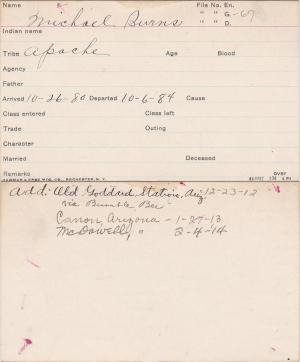 Name File No. En.
Michael Burns " " G.-67
" " D.
Indian name
Tribe Apache Age Blood
Agency
Father
Arrived 10-26-80 Departed 10-6-84 Cause
Class entered Class left
Trade Outing
Character
Married Deceased
Remarks over
YAWMAN & ERBE MFG. CO. ROCHESTER, N. Y.
Add: Old Goddard Station, Ariz 12-23-12
via Bumble Bee
Canon, Arizona - 1-27-13
McDowell, " 2-4-14